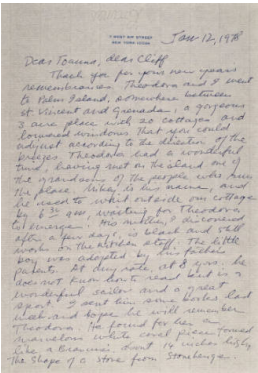 7 WEST 81st STREET
NEW YORK 10024
Jan 12, 1978
Dear Joanna, dear Cliff
Thank you for your new years
remembrance. Theodora and I went
to Palm Island, somewhere between
St. Vincent and Grenada, a gorgeous
3 acre place with 20 cottages and
louvered windows that you could
adjust according to the direction of the
breezes. Theodora had a wonderful
time, having met on the island one of
the grandsons of the people who run
the place. Mikey is his name, and
he used to wait outside our cottage
by 6:30 am waiting for Theodora
to emerge. His family, I discovered
after a few days, is black and still
works on the kitchen staff. The little
boy was adopted by his
parents. At age nine, he
does not know how to read but is a
wonderful sailor and a great
sport. I sent him some books last
week and hope he will remember
Theodora. He found for her a
marvelous white coral piece formed
like a Brancusi, about 14 inches high,
the shape of a stone from Stonehenge.